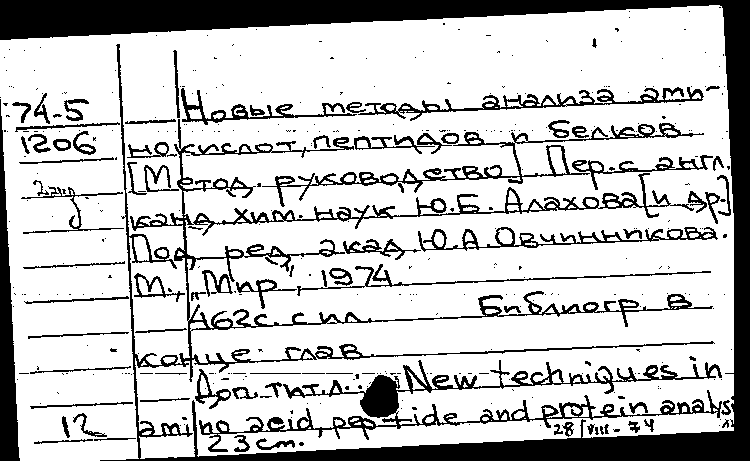 74-5
1206
Новые методы анализа ами-
нокислот, пептидов и белков.
[Метод. руководство] Пер. с англ.
канд. хим. наук Ю.Б. Алахова [и др.]
Под ред. акад. Ю.А. Овчинникова.
М., „Мир", 1974.
462 с. с ил. Библиогр. в
конце глав.
Доп. тит. л.: New techniques in
12 amino acid, peptide and protein analysi
23 cm. 28/VIII-74